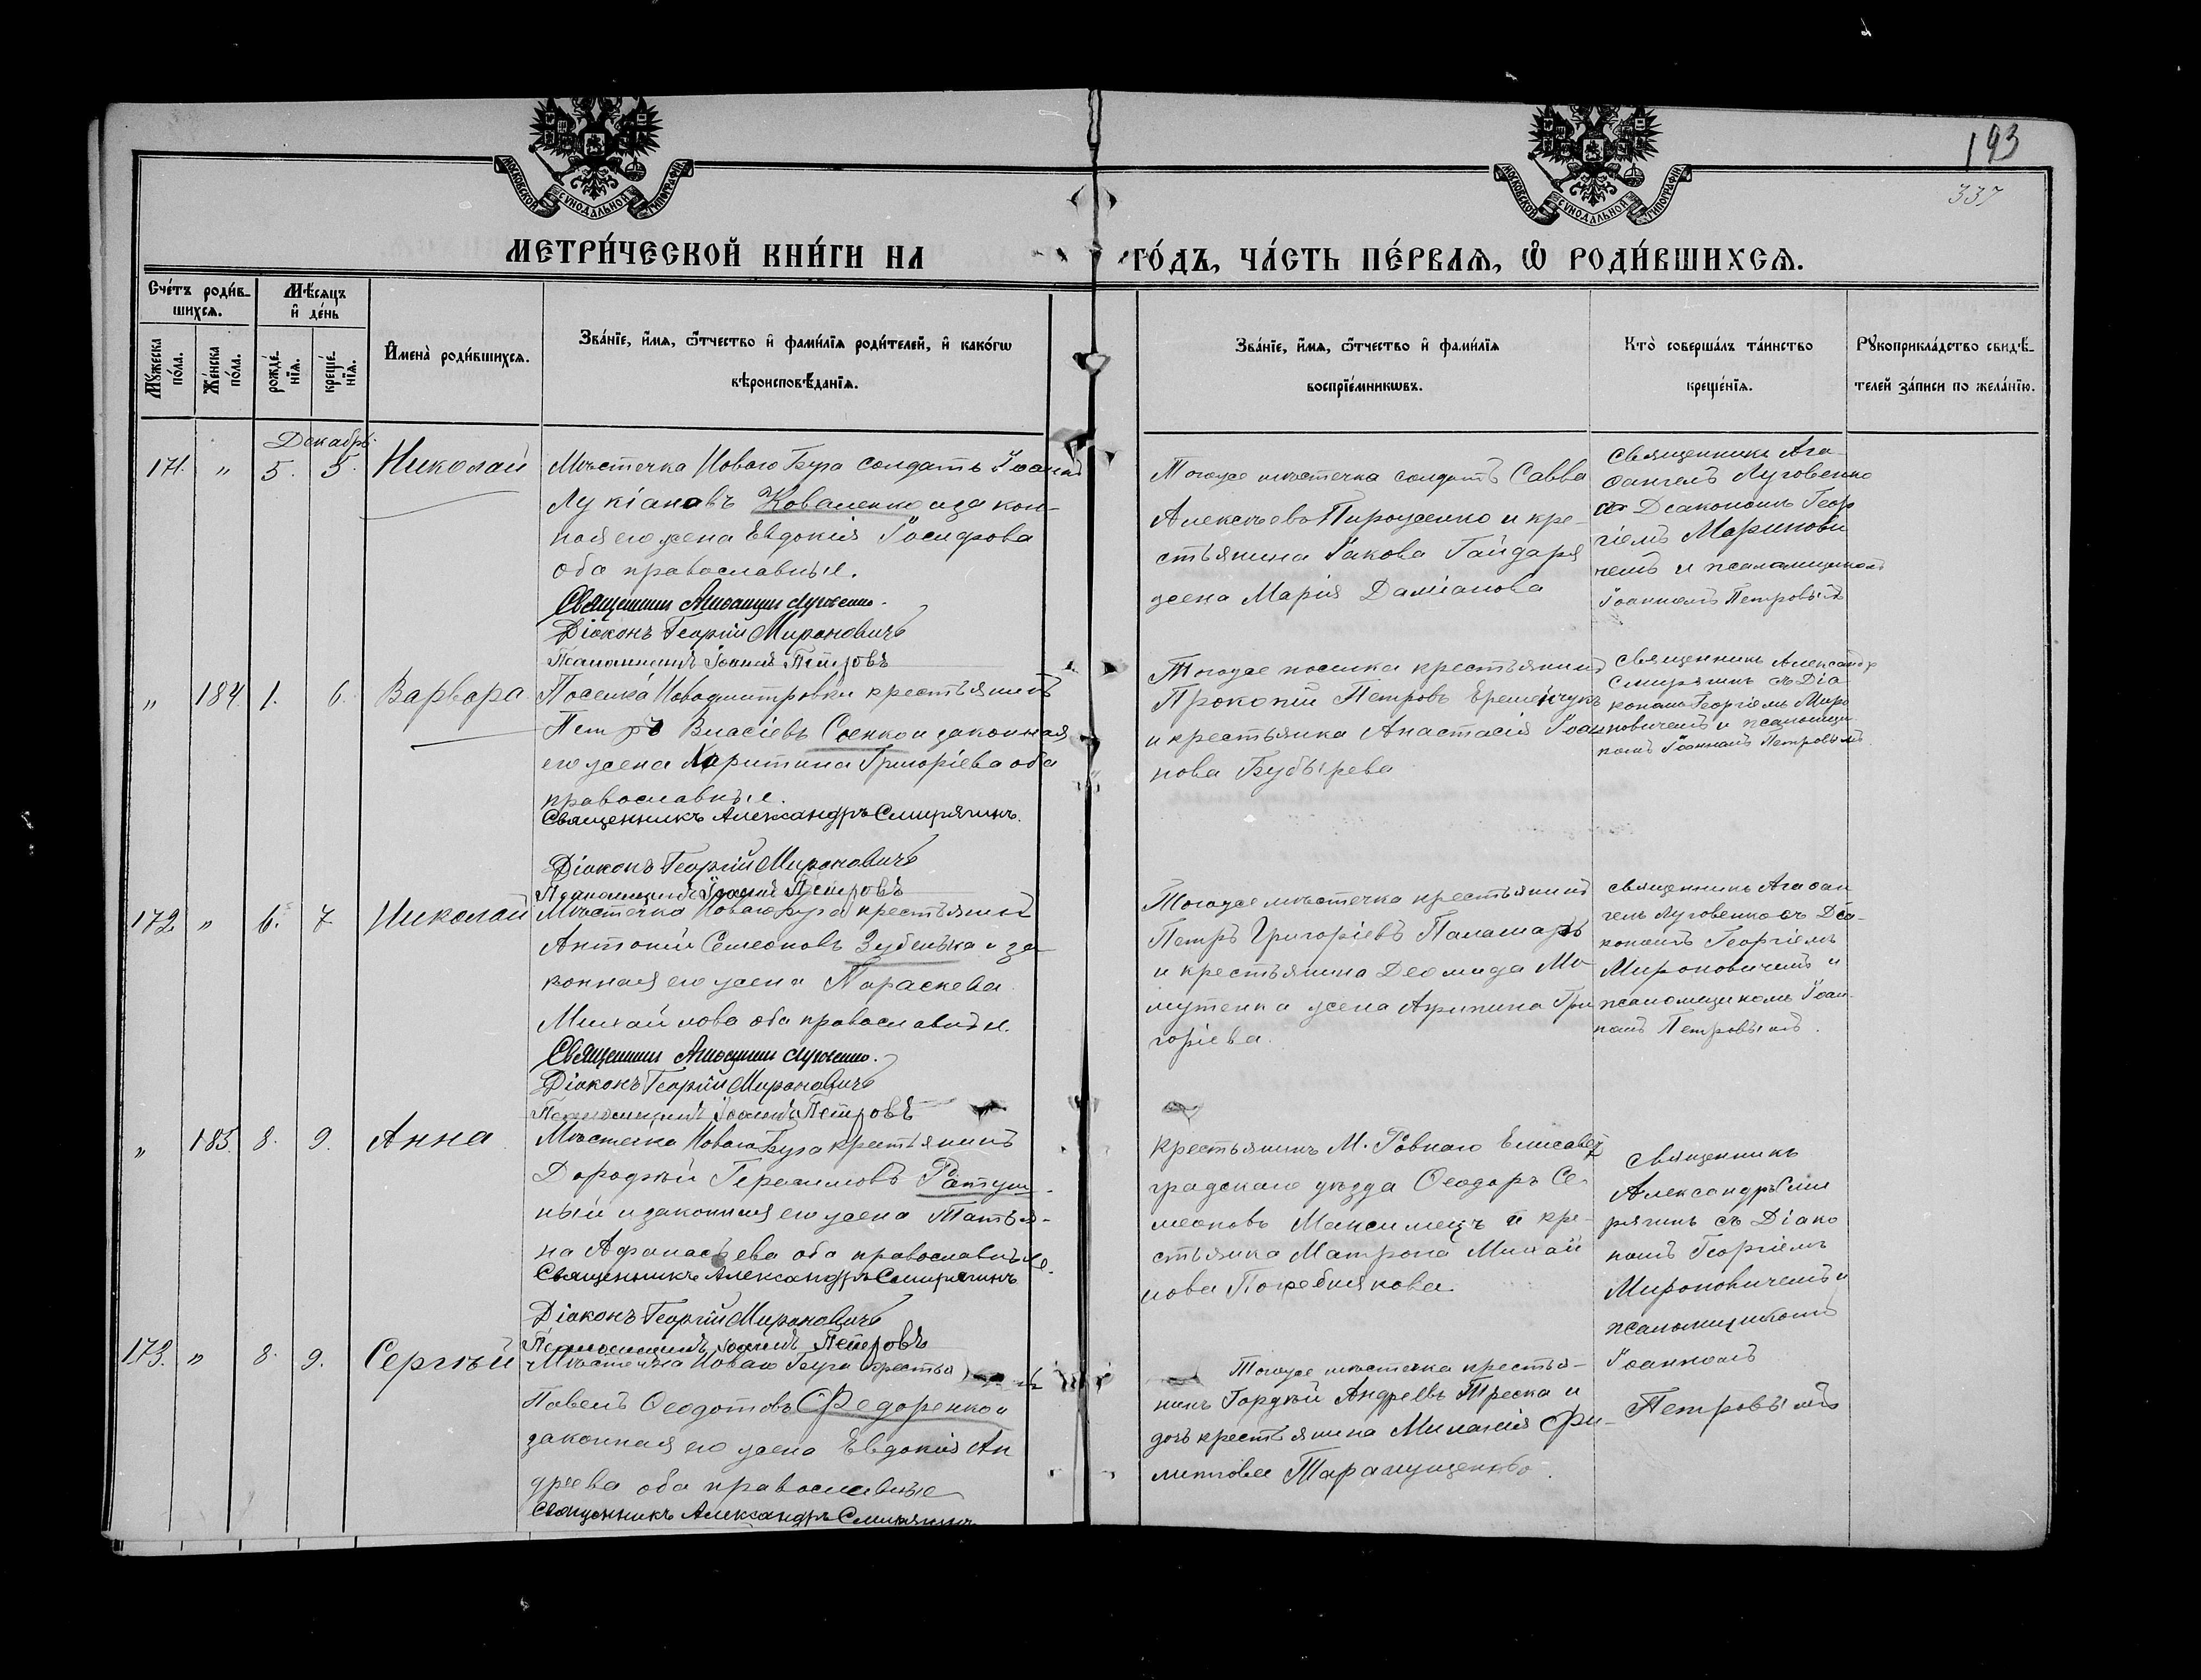 193
337
МОСКОВСКОЙ СѴНОДАЛЬНОЙ ТИПОГРАФІИ
МОСКОВСКОЙ СѴНОДАЛЬНОЙ ТИПОГРАФІИ
МЕТРИ́ЧЕСКОЙ КНИ́ГИ НА
ГО́ДЪ, ЧА́СТЬ ПЕ́РВАѦ, Ѡ РОДИ́ВШИХСѦ.
Сче́тъ роди́в-
шихсѧ.
Мꙋжеска по́ла.
Же́нска по́ла.
Мѣ́сѧцъ
и҆ де́нь
рожде́нїѧ.
креще́нїѧ.
И҆мена̀ роди́вшихсѧ.
Зва́нїе, и҆́мѧ, ѻ҆́тчество и҆ фами́лїѧ роди́телей, и҆ како́гѡ
вѣроисповѣ́данїѧ.
Зва́нїе, и҆́мѧ, ѻ҆́тчество и҆ фами́лїѧ
воспрїе́мникѡвъ.
Кто̀ соверша́лъ та́инство
креще́нїѧ.
Рꙋкоприкла́дство свидѣ́-
телей за́писи по жела́нїю.
Декабрь
171. " 5. 5. Николай
Мѣстечка Новаго Буга солдатъ Іоаннъ
Лукіановъ Коваленко и закон-
ная его жена Евдокія Іосифова
оба православные.
Священникъ Агаѳангелъ Луговенко.
Діаконъ Георгій Мироновичъ
Псаломщикъ Іоаннъ Петровъ
Тогоже мѣстечка солдатъ Савва
Алексѣевъ Пироженко и кре-
стьянина Іакова Гайдаря
жена Марія Даміанова
Священникъ Ага-
ѳангелъ Луговенко
съ Діакономъ Геор
гіемъ Миронови
чемъ и псаломщикомъ
Іоанномъ Петровымъ
" 184. 1. 6. Варвара
Поселка Новодмитровки крестьянинъ
Петръ Власіевъ Соенко и законная
его жена Харитина Григоріева оба
православные.
Священникъ Александръ Смирягинъ.
Діаконъ Георгій Мироновичъ
Псаломщикъ Іоаннъ Петровъ
Тогоже поселка крестьянинъ
Прокопій Петровъ Еремейчукъ
и крестьянка Анастасія Іоан
нова Бубырева
Священникъ Александръ
Смирягинъ съ Діа
кономъ Георгіемъ Миро
новичемъ и псаломщи
комъ Іоанномъ Петровымъ
172. " 6. 7. Николай
Мѣстечка Новаго Буга крестьянинъ
Антоній Семеоновъ Зубенька и за
конная его жена Параскева
Михайлова оба православные.
Священникъ Агаѳангелъ Луговенко.
Діаконъ Георгій Мироновичъ
Псаломщикъ Іоаннъ Петровъ
Тогоже мѣстечка крестьянинъ
Петръ Григоріевъ Паламарь
и крестьянина Деомида
жена Агрипина Гри
горіева.
Священникъ Агаѳан
гелъ Луговенко съ Діа-
кономъ Георгіемъ
Мироновичемъ и
псаломщикомъ Іоан
номъ Петровымъ.
" 185. 8. 9. Анна
Мѣстечка Новаго Буга крестьянинъ
Дорофѣй Герасимовъ Ратуш-
ный и законная его жена Татья-
на Афанасьева оба православные.
Священникъ Александръ Смирягинъ
Діаконъ Георгій Мироновичъ
Псаломщикъ Іоаннъ Петровъ
Крестьянинъ М. Ровнаго Елисавет
градскаго уѣзда Ѳеодоръ Се-
меоновъ Максимецъ и кре-
стьянка Матрона Михай
лова Погребнякова
Священникъ
Александръ Сми
рягинъ съ Діако
номъ Георгіемъ
Мироновичемъ и
псаломщикомъ
Іоанномъ
Петровымъ
173. " 8. 9. Сергѣй
Мѣстечка Новаго Буга крестья
Павелъ Ѳеодотовъ Федоренко и
законная его жена Евдокія Ан
дреева оба православные
Священникъ Александръ Смирягинъ
Тогоже мѣстечка крестья-
нинъ Гордѣй Андреевъ Треска и
дочь крестьянина Миланія Фи-
липова Тарапущенко.